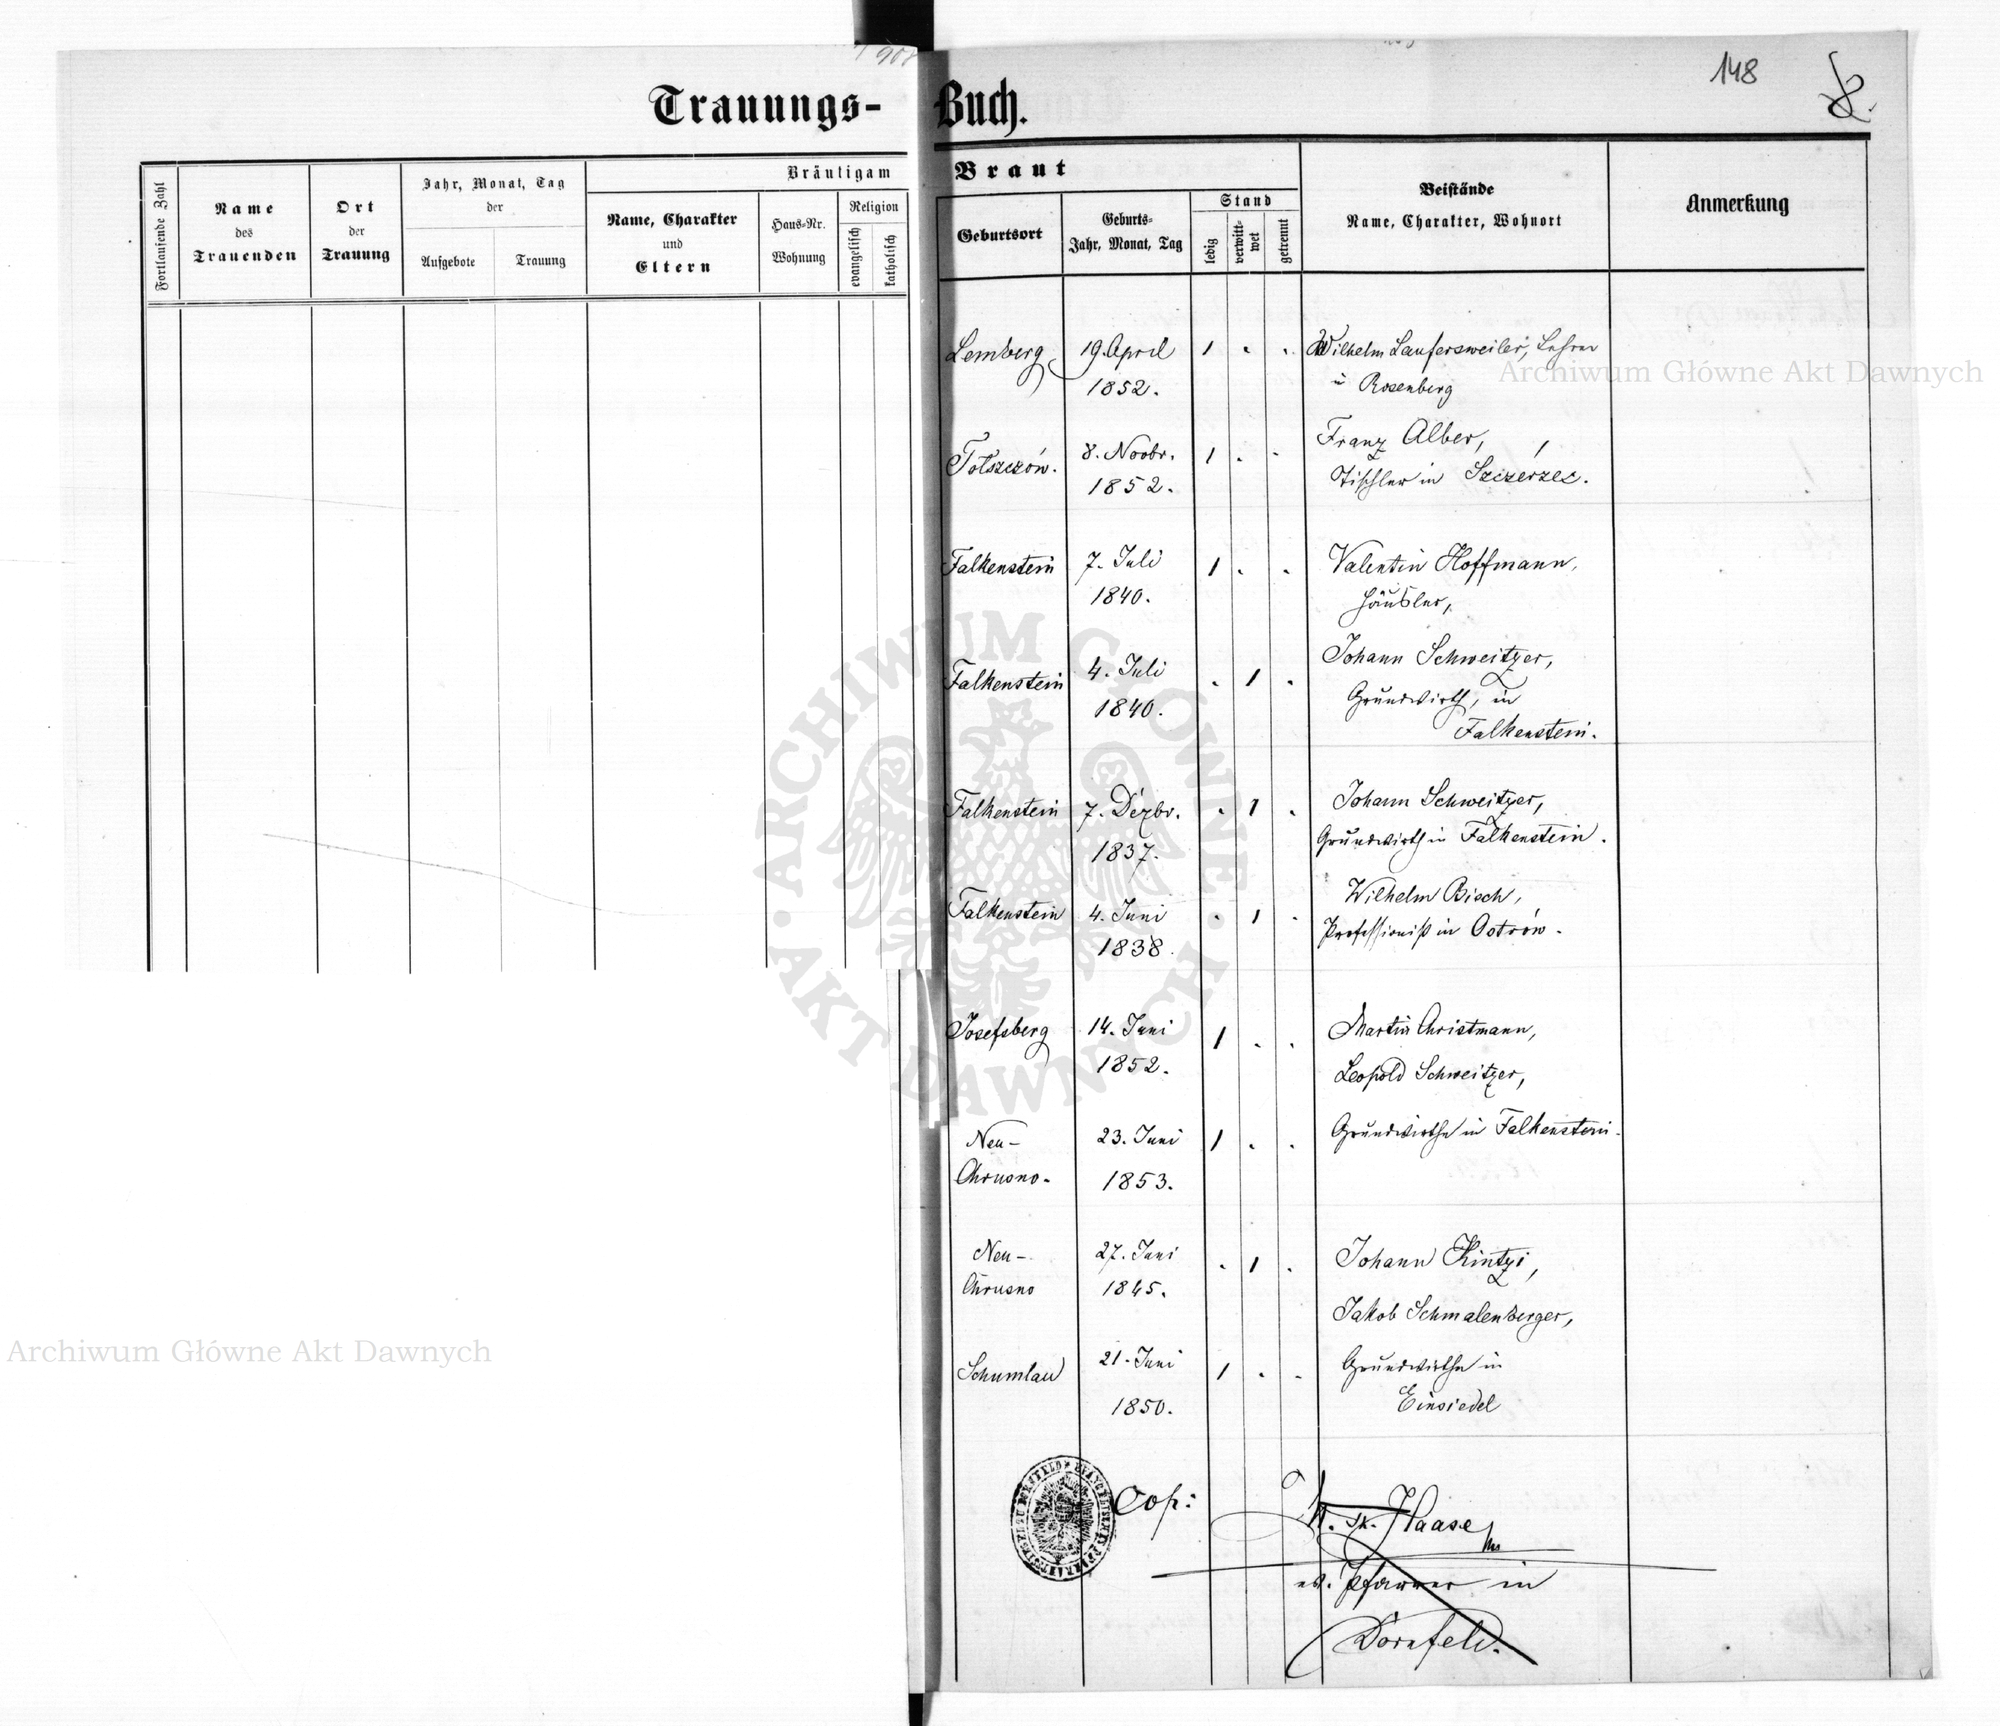 148
8.
Trauungs-Buch.
Fortlaufende Zahl
Name
des
Trauenden
Ort
der
Trauung
Jahr, Monat, Tag
der
Aufgebote
Trauung
Bräutigam
Name, Charakter
und
Eltern
Haus-Nr.
Wohnung
Religion
evangelisch
katholisch
Braut
Geburtsort
Geburts-
Jahr, Monat, Tag
Stand
ledig
verwitt-
wet
getrennt
Beistände
Name, Charakter, Wohnort
Anmerkung
Lemberg 19. April 1 . . Wilhelm Laufersweiler, Lehrer
1852. in Rosenberg
Tołszczów. 8. Novbr. 1 . . Franz Alber,
1852. Tischler in Szczerzec.
Falkenstein 7. Juli 1 . . Valentin Hoffmann,
1840. Häusler,
Falkenstein 4. Juli . 1 . Johann Schweitzer,
1840. Grundwirth, in
Falkenstein.
Falkenstein 7. Dezbr. . 1 . Johann Schweitzer,
1837. Grundwirth in Falkenstein.
Falkenstein 4. Juni . 1 . Wilhelm Bisch,
1838. Professionist in Ostrów.
Josefsberg 14. Juni 1 . . Martin Christmann,
1852. Leopold Schweitzer,
Neu- 23. Juni 1 . . Grundwirthe in Falkenstein.
Chrusno. 1853.
Neu- 27. Juni . 1 . Johann Kintzi,
Chrusno 1845. Jakob Schmalenberger,
Schumlau 21. Juni 1 . . Grundwirthe in
1850. Einsiedel
Cop: Haase
ev. Pfarrer in
Dornfeld.
Archiwum Główne Akt Dawnych
Archiwum Główne Akt Dawnych
ARCHIWUM GŁÓWNE · AKT DAWNYCH ·